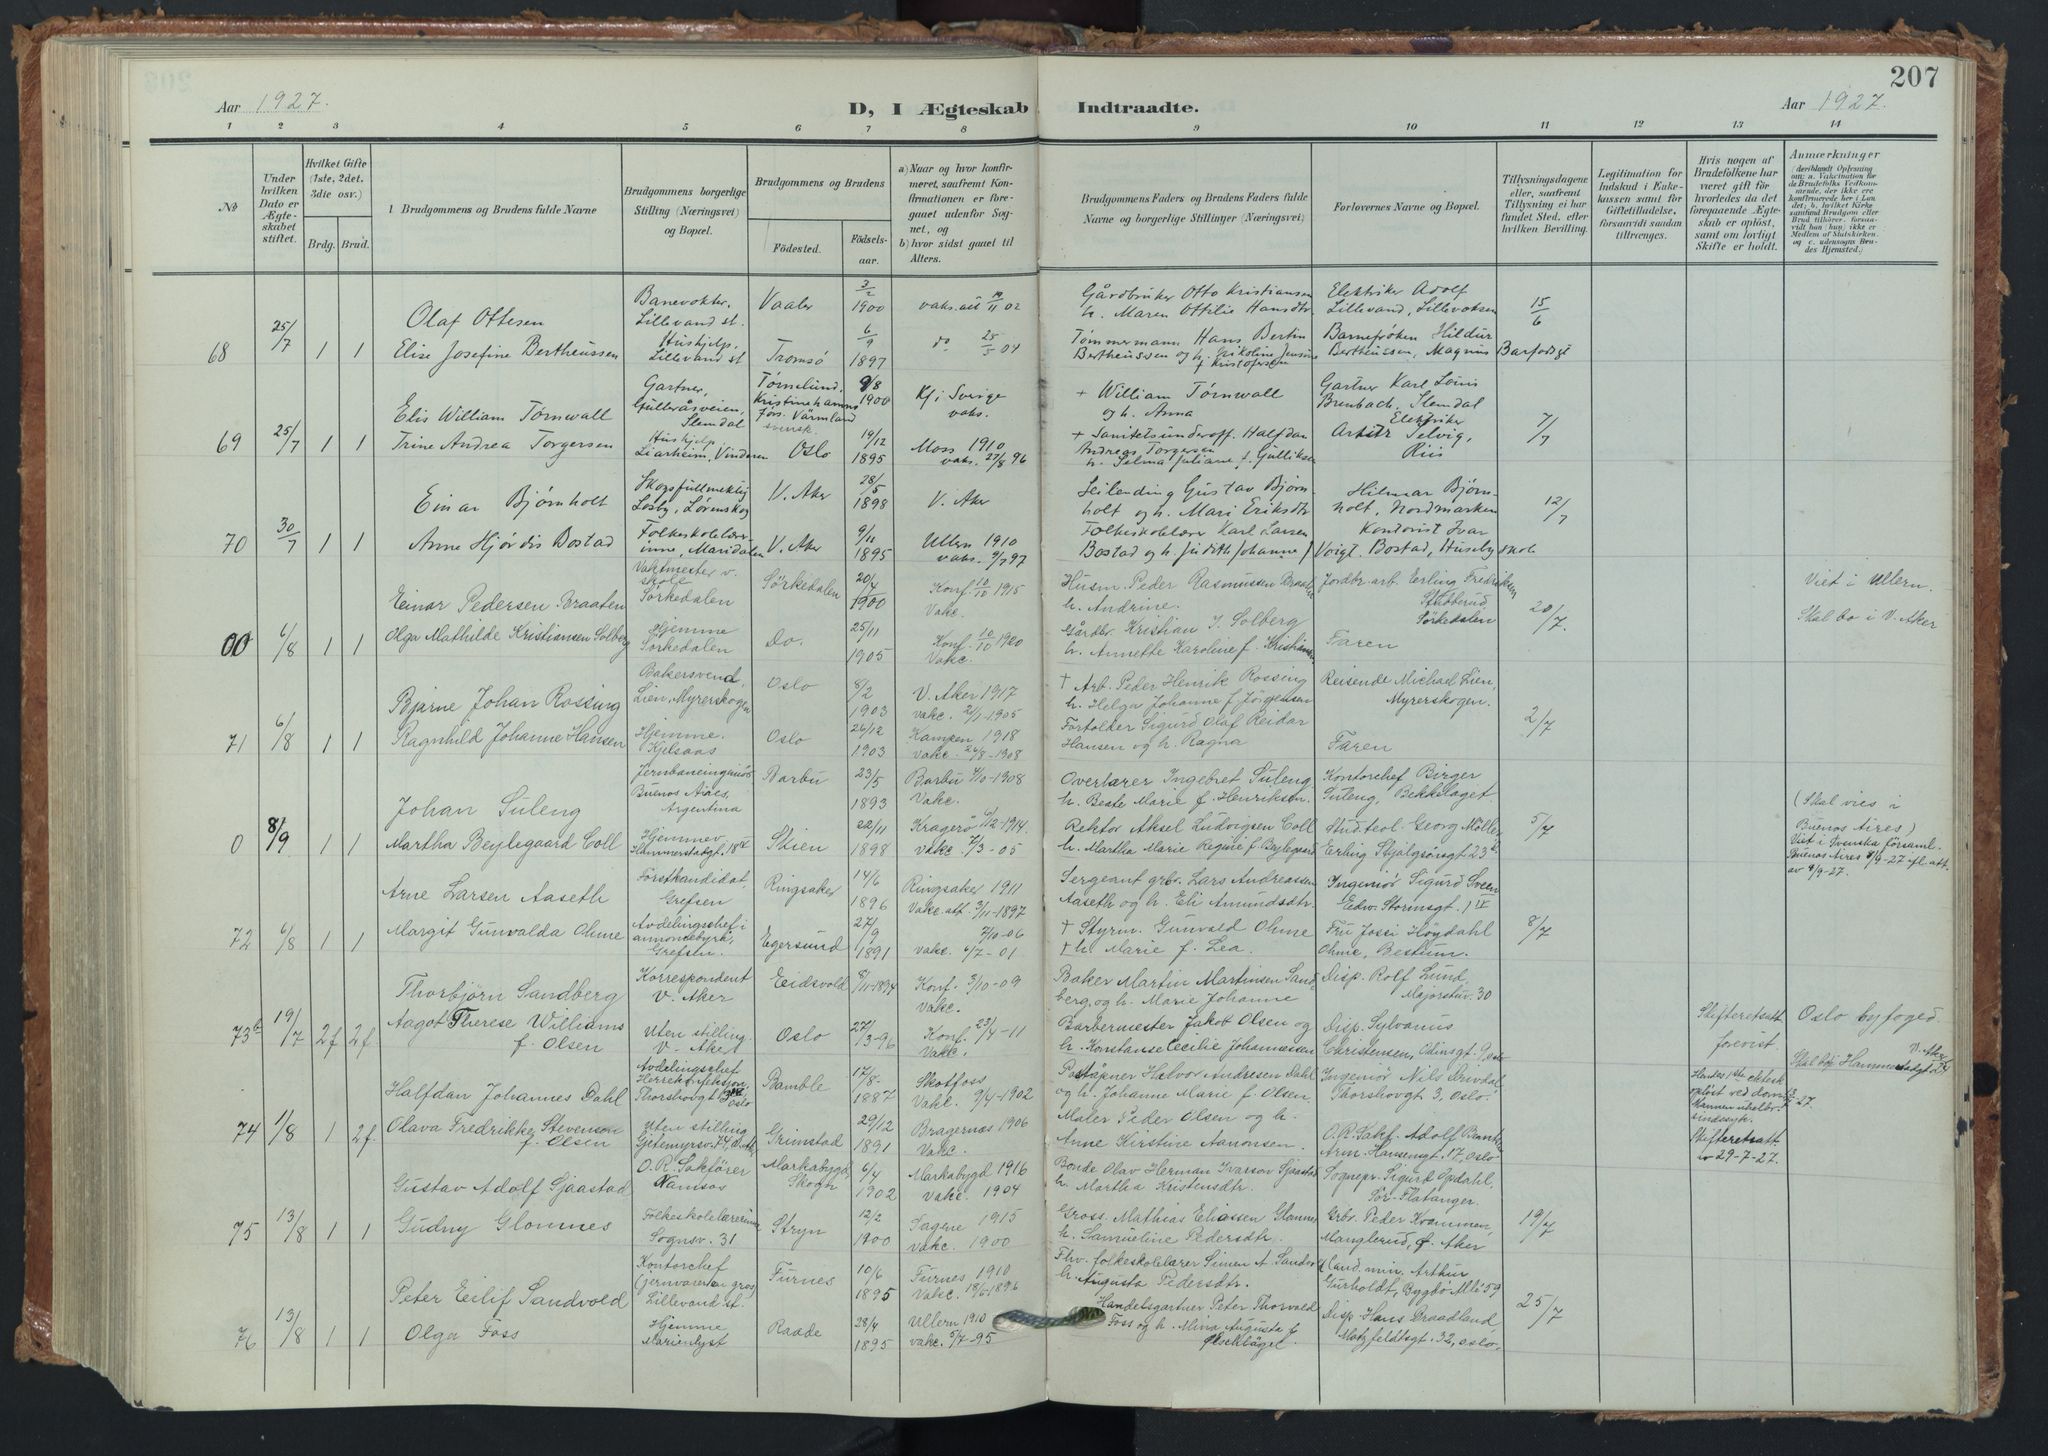 207
Aar 1927.
D, I Ægteskab Indtraadte.
Aar 1927.
1 2 3 4 5 6 7 8 9 10 11 12 13 14
No
Under hvilken Dato er Ægteskabet stiftet.
Hvilket Gifte (1ste, 2det, 3die osv.)
Brdg. Brud.
Brudgommens og Brudens fulde Navne
Brudgommens borgerlige Stilling (Næringsvei) og Bopæl.
Brudgommens og Brudens
Födested.
Födselsaar.
a) Naar og hvor konfirmeret, saafremt Konfirmationen er foregaaet udenfor Sognet, og
b) hvor sidst gaaet til Alters.
Brudgommens Faders og Brudens Faders fulde Navne og borgerlige Stillinger (Næringsvei)
Forlovernes Navne og Bopæl.
Tillysningsdagene eller, saafremt Tillysning ei har fundet Sted, efter hvilken Bevilling.
Legitimation for Indskud i Enkekassen samt for Giftetilladelse, forsaavidt saadan tiltrænges.
Hvis nogen af Brudefolkene har været gift för hvorledes da det foregaaende Ægteskab er oplöst, samt om lovligt Skifte er holdt.
Anmærkninger
68 25/7 1 1
Olaf Ottesen
Banevokter, Lillevand st.
Vaaler 3/2 1900
Gårdbruker Otto Kristiansen
h. Maren Ottilie Hansdtr
Elektriker Adolf
Lillevand, Lillevoksen
15/6
Elise Josefine Bertheussen
Hushjelp, Lillevand st
Tromsö 6/9 1897
do 25/5 04
Tømmermann Hans Bertin
Bertheussen og h.
Barnefrøken Hildur
Bertheussen, Magnus Barfodsgt
69 25/7 1 1
Elis William Tornwall
Gartner, Gullkråsveien, Slemdal
Kristinehamns förs. Värmland svensk.
9/8 1900
Kfi Sverige vaks.
+ William Törnwall
og h. Anna
Gartner Karl Louis
Slemdal
7/7
Trine Andrea Torgersen
Hushjelp, Vinderen
Oslo 19/12 1895
Moss 1910
vaks. 27/8 96
+ Sanitetsunderoff. Halfdan
Andreas Torgersen
h. Selma Juliane f. Gulliksen
Elektriker
Selvig, Riis
70 30/7 1 1
Einar Bjørnholt
Skogsfullmektig Losby, Lørenskog
V. Aker 28/5 1898
V. Aker
Leilending Gustav Bjørnholt og h. Mari Eriksdtr
Hilmar Bjørnholt, Nordmarken
12/7
Anne Hjørdis Bostad
Folkeskolelærerinne, Maridalen
V. Aker 9/11 1895
Ullern 1910
vaks. 9/7 97
Folkeskolelær Karl Larsen
Bostad og h. Judith Johanne f
Kontorist Ivar
Voigt Bostad, Huseby skole
00 6/8 1 1
Einar Pedersen Braaten
Vaktmester v. skole Sörkedalen
Sörkedalen 20/4 1900
Konf. 10/10 1915
Vakc.
Husm. Peder Rasmussen Braaten
h. Andrine.
Jordbr. arb. Erling Fredriksen
Stubberud
Sörkedalen
20/7.
Viet i Ullern.
Skal bo i V. Aker
Olga Mathilde Kristiansen Solberg
Hjemme Sörkedalen
Do. 25/11 1905
Konf. 10/10 1920
Vakc.
Gårdbr. Kristian J. Solberg
h. Annette Karoline f. Kristiansen
Faren
71 6/8 1 1
Bjarne Johan Rossing
Bakersvend, Lien, Myrerskogen
Oslo 8/2 1903
V. Aker 1917
vakc. 2/1-1905
+ Arb. Peder Henrik Rossing
h. Helga Johanne f Jörgensen
Reisende Michael Lien,
Myrerskogen.
2/7
Ragnhild Johanne Hansen
Hjemme. Kjelsaas
Oslo 26/12 1903
Kampen 1918
vakc. 26/8-1908
Fortolder Sigurd Olaf Reidar
Hansen og h. Ragna
Faren
0 8/9 1 1
Johan Suleng
Jernbaneingeniör Buenos Aires, Argentina
Barbu 23/5 1893
Barbu 4/10-1908
Vakc.
Overlærer Ingebret Suleng
h. Beate Marie f. Henriksen.
Kontorchef Birger
Suleng, Bekkelaget.
5/7
(Skal vies i Buenos Aires)
Viet i Svenska församl. Buenos Aires 8/9-27 ifl. att. av 9/9-27.
Martha Beylegaard Coll
Hjemmev Hammerstadgt. 18 IV
Skien 22/11 1898
Kragerö 6/12-1914.
vakc. 7/3-05
Rektor Aksel Ludvigsen Coll
h. Martha Marie Regine f. Beylegaard
Stud teol. Georg Möller
Erling Skjalgsönsgt 23b
72 6/8 1 1
Arne Larsen Aaseth
Forstkandidat, Grefsen
Ringsaker 14/6 1896
Ringsaker 1911
Vakc. att. 3/11-1897
Sergeant grbr. Lars Andreassen
Aaseth og h. Eli Amundsdtr.
Ingeniör Sigurd Sveen
Edv. Stormsgt. 1 IV
8/7
Margit Gunvalda Ohme
Avdelingschef i annoncebyrå, Grefsen.
Egersund 27/9 1891
4/10-06
vakc. 6/7-01
+ Styrm. Gunvald Ohme
+ h. Marie f. Lea.
Fru Jossi Höydahl
Ohme, Bestum.
73b 19/7 2f 2f.
Thorbjörn Sandberg
Korrespondent V. Aker
Eidsvold 8/11-1894
Konf. 3/10-09
Vakc.
Baker Martin Martinsen Sandberg, og h. Marie Johanne
Disp. Rolf Lund,
Majorstuv. 30
Skifteretsatt forevist.
Oslo byfoged.
Aagot Therese Williams
f. Olsen
Uten stilling. V. Aker
Oslo 27/3-96
Konf. 23/4-11
Vakc.
Barbermester Jakob Olsen og
h. Konstanse Cecilie Johannessen
Disp. Sylvanus
Christensen, Odinsgt. 9, Oslo
74 1/8 1 2f.
Halfdan Johannes Dahl
Avdelingschef
Thorshovgt 3 Oslo
Bamble 17/8-1887
Skotfoss
Vakc. 9/4-1902
Poståpner Halvor Andresen Dahl
og h. Johanne Marie f. Olsen.
Ingeniör Nils Drivdal
Thorshovgt 3, Oslo.
Olava Fredrikke Stevenson
f. Olsen
Uten stilling
Geitemyrsv. 74,
Grimstad 29/12 1891
Bragernæs 1906
Vakc.
Maler Peder Olsen og h.
Anne Kirstine Aanonsen.
O.R. Sakf. Adolf
Arm. Hansensgt 17, Oslo
Skifteretsatt av 29-7-27.
75 13/8 1 1
Gustav Adolf Sjaastad
O. R. Sakförer Namsos
Markabygd Skogn 6/4 1902
Markabygd 1916
Vakc. 1904
Bonde Olav Herman Ivarson Sjaastad
h. Martha Kristensdtr.
Sognepr. Sigurd Opdahl,
Sör-Flatanger.
19/7
Gudny Glomnes
Folkeskolelærerinne Sognsv. 31
Stryn 12/2 1900
Sagene 1915
Vakc. 1900
Gross. Mathias Eliassen Glomnes
h. Samueline Pedersdtr.
Grbr. Peder Kvammen,
Manglerud, Ö. Aker
76 13/8 1 1
Peter Eilif Sandvold
Kontorchef (jernvarer en gros) Lillevand st.
Furnes 10/6 1895
Furnes 1910
Vakc. 18/6-1896
Fhv. folkeskolelærer Simen A. Sandvold
h. Augusta Pedersdtr.
Cand. min. Arthur
Gurholdt, Bygdö Allé 59
25/7
Olga Foss
Hjemme Marienlyst
Raade 28/4 1895
Ullern 1910
vakc. 5/7-95
Handelsgartner Peter Thorvald
Foss og h. Mina Augusta f
Oeschlägel
Disp. Hans Braadland
Motzfeldtsgt. 32, Oslo.